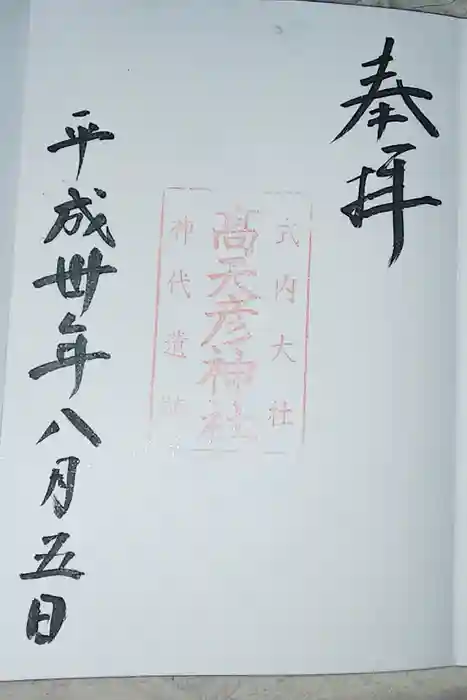 奉拝
式内大社
高天彦神社
神代遺跡
平成卅年八月五日